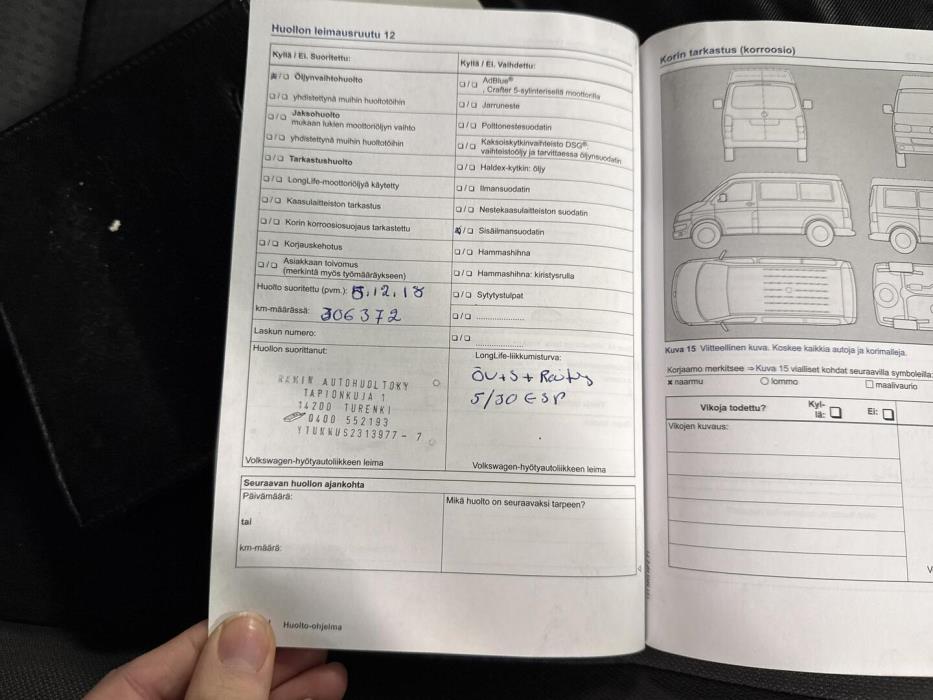 Huollon leimausruutu 12
Kyllä / Ei. Suoritettu:
Öljynvaihtohuolto
yhdistettynä muihin huoltotöihin
Jaksohuolto
mukaan lukien moottoriöljyn vaihto
yhdistettynä muihin huoltotöihin
Tarkastushuolto
LongLife-moottoriöljyä käytetty
Kaasulaitteiston tarkastus
Korin korroosiosuojaus tarkastettu
Korjauskehotus
Asiakkaan toivomus
(merkintä myös työmääräykseen)
Huolto suoritettu (pvm.): 5.12.18
km-määrässä: 306372
Laskun numero:
Huollon suorittanut:
RAKIN AUTOHUOLTOKY
TAPIONKUJA 1
14200 TURENKI
0400 552193
YTUNNUS2313977-7
Volkswagen-hyötyautoliikkeen leima
Kyllä / Ei. Vaihdettu:
AdBlue®
, Crafter 5-sylinterisellä moottorilla
Jarruneste
Polttonestesuodatin
Kaksoiskytkinvaihteisto DSG®:
vaihteistoöljy ja tarvittaessa öljynsuodatin
Haldex-kytkin: öljy
Ilmansuodatin
Nestekaasulaitteiston suodatin
Sisäilmansuodatin
Hammashihna
Hammashihna: kiristysrulla
Sytytystulpat
LongLife-liikkumisturva:
ÖV+S+
5/30 ESP
Volkswagen-hyötyautoliikkeen leima
Seuraavan huollon ajankohta
Päivämäärä:
tai
km-määrä:
Mikä huolto on seuraavaksi tarpeen?
Huolto-ohjelma
Korin tarkastus (korroosio)
Kuva 15 Viitteellinen kuva. Koskee kaikkia autoja ja korimalleja.
Korjaamo merkitsee ⇒ Kuva 15 vialliset kohdat seuraavilla symboleilla:
× naarmu
lommo
maalivaurio
Vikoja todettu?
Kyl-
lä:
Ei:
Vikojen kuvaus: